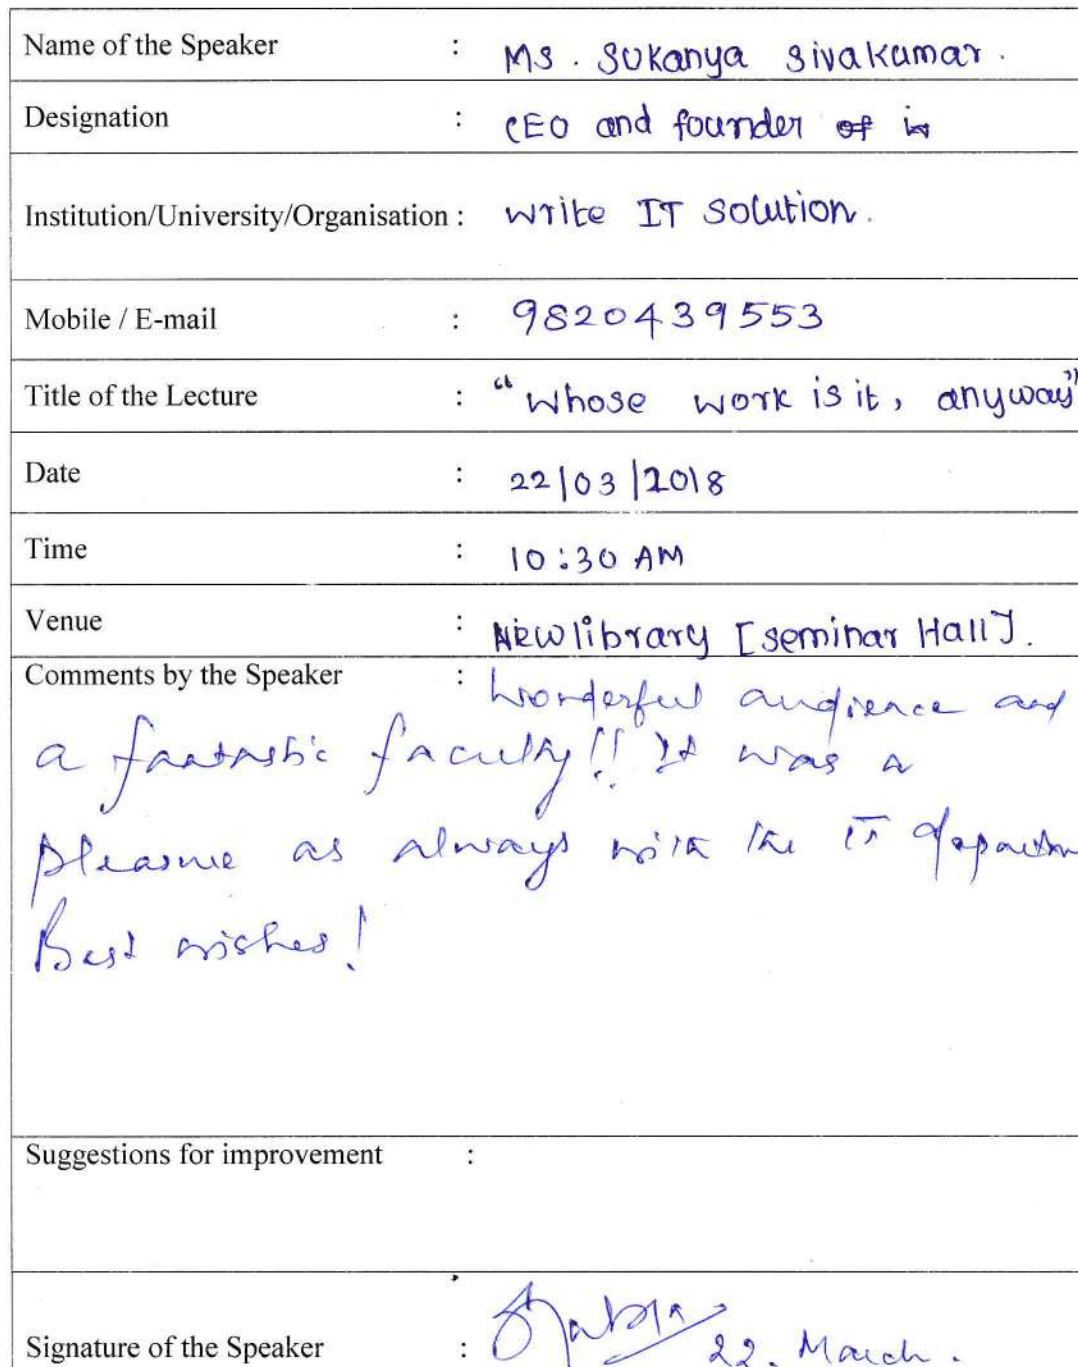 Name of the Speaker : Ms. Sukanya Sivakumar.
Designation : CEO and founder of in
Institution/University/Organisation : Write IT Solution.
Mobile / E-mail : 9820439553
Title of the Lecture : "Whose work is it, anyway"
Date : 22/03/2018
Time : 10:30 AM
Venue : New library [seminar Hall].
Comments by the Speaker : Wonderful audience and
a fantastic faculty!! It was a
pleasure as always with the IT departm
Best wishes!
Suggestions for improvement :
Signature of the Speaker : 22. March.